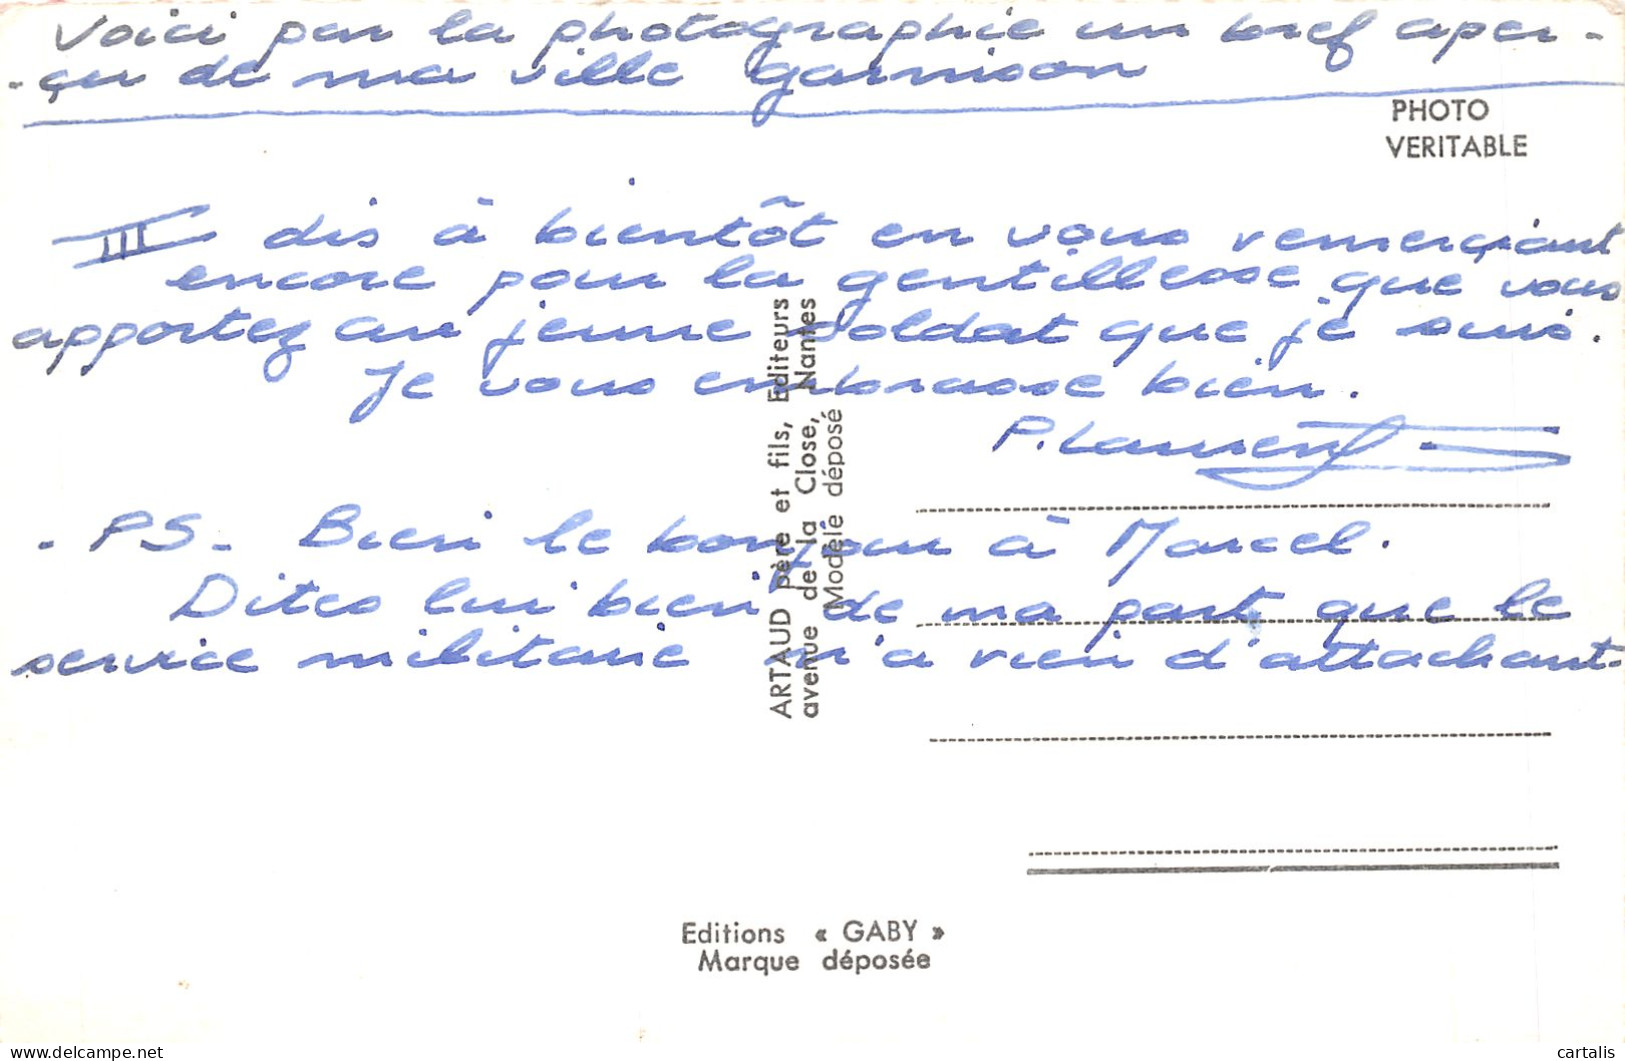 Voici par la photographie un bref aper-
-çu de ma ville garnison
PHOTO
VERITABLE
III dis à bientôt en vous remerciant
encore pour la gentillesse que vous
apportez au jeune soldat que je suis.
Je vous embrasse bien.
P. Laurent
- PS - Bien le bonjour à Marcel.
Dites lui bien de ma part que le
service militaire m'a rien d'attachant.
ARTAUD père et fils, Editeurs
avenue de la Close, Nantes
Modèle déposé
Editions « GABY »
Marque déposée
delcampe.net
cartalis